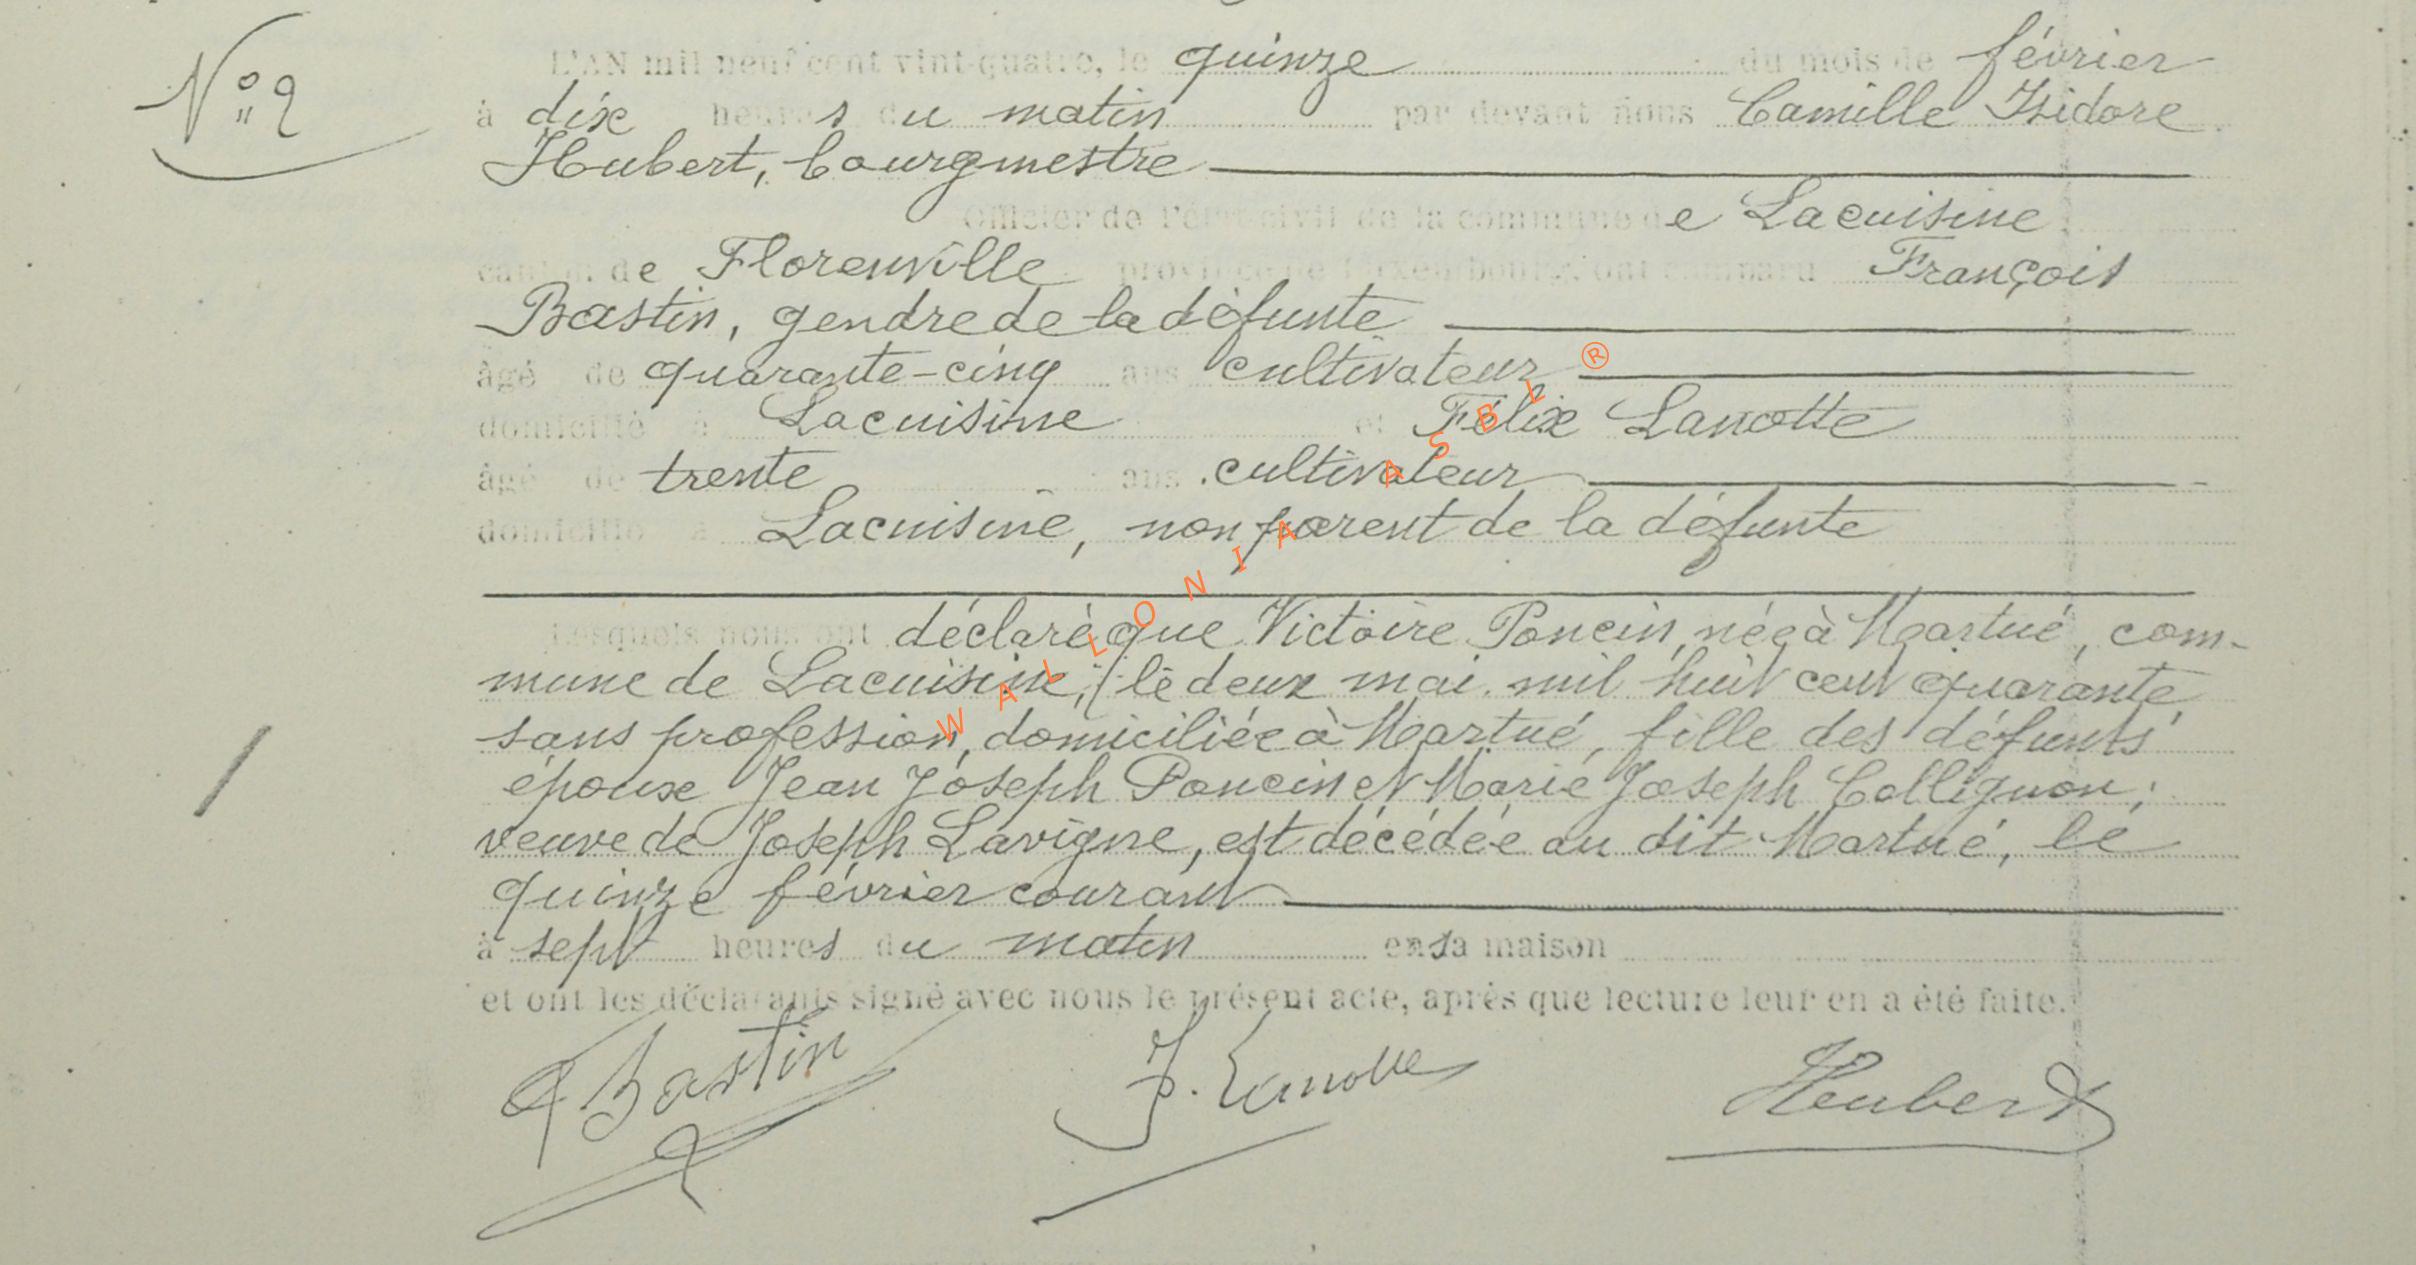 N° 2
L'AN mil neuf cent vint-quatre, le quinze du mois de février
à dix heures du matin par devant nous Camille Isidore
Hubert, bourgmestre
Officier de l'état civil de la commune de Lacuisine
canton de Florenville province de Luxembourg, ont comparu François
Bastin, gendre de la défunte
âgé de quarante-cinq ans cultivateur
domicilié à Lacuisine et Félix Lanotte
âgé de trente ans cultivateur
domicilié à Lacuisine, non parent de la défunte
Lesquels nous ont déclaré que Victoire Poncin, née à Martué, com-
mune de Lacuisine, le deux mai mil huit cent quarante,
sans profession, domiciliée à Martué, fille des défunts
époux Jean Joseph Poncin et Marie Joseph Collignon;
veuve de Joseph Lavigne, est décédée au dit Martué, le
quinze février courant
à sept heures du matin en sa maison
et ont les déclarants signé avec nous le présent acte, après que lecture leur en a été faite.
Bastin F. Lanotte Hubert
WALLONIA ASBL ®